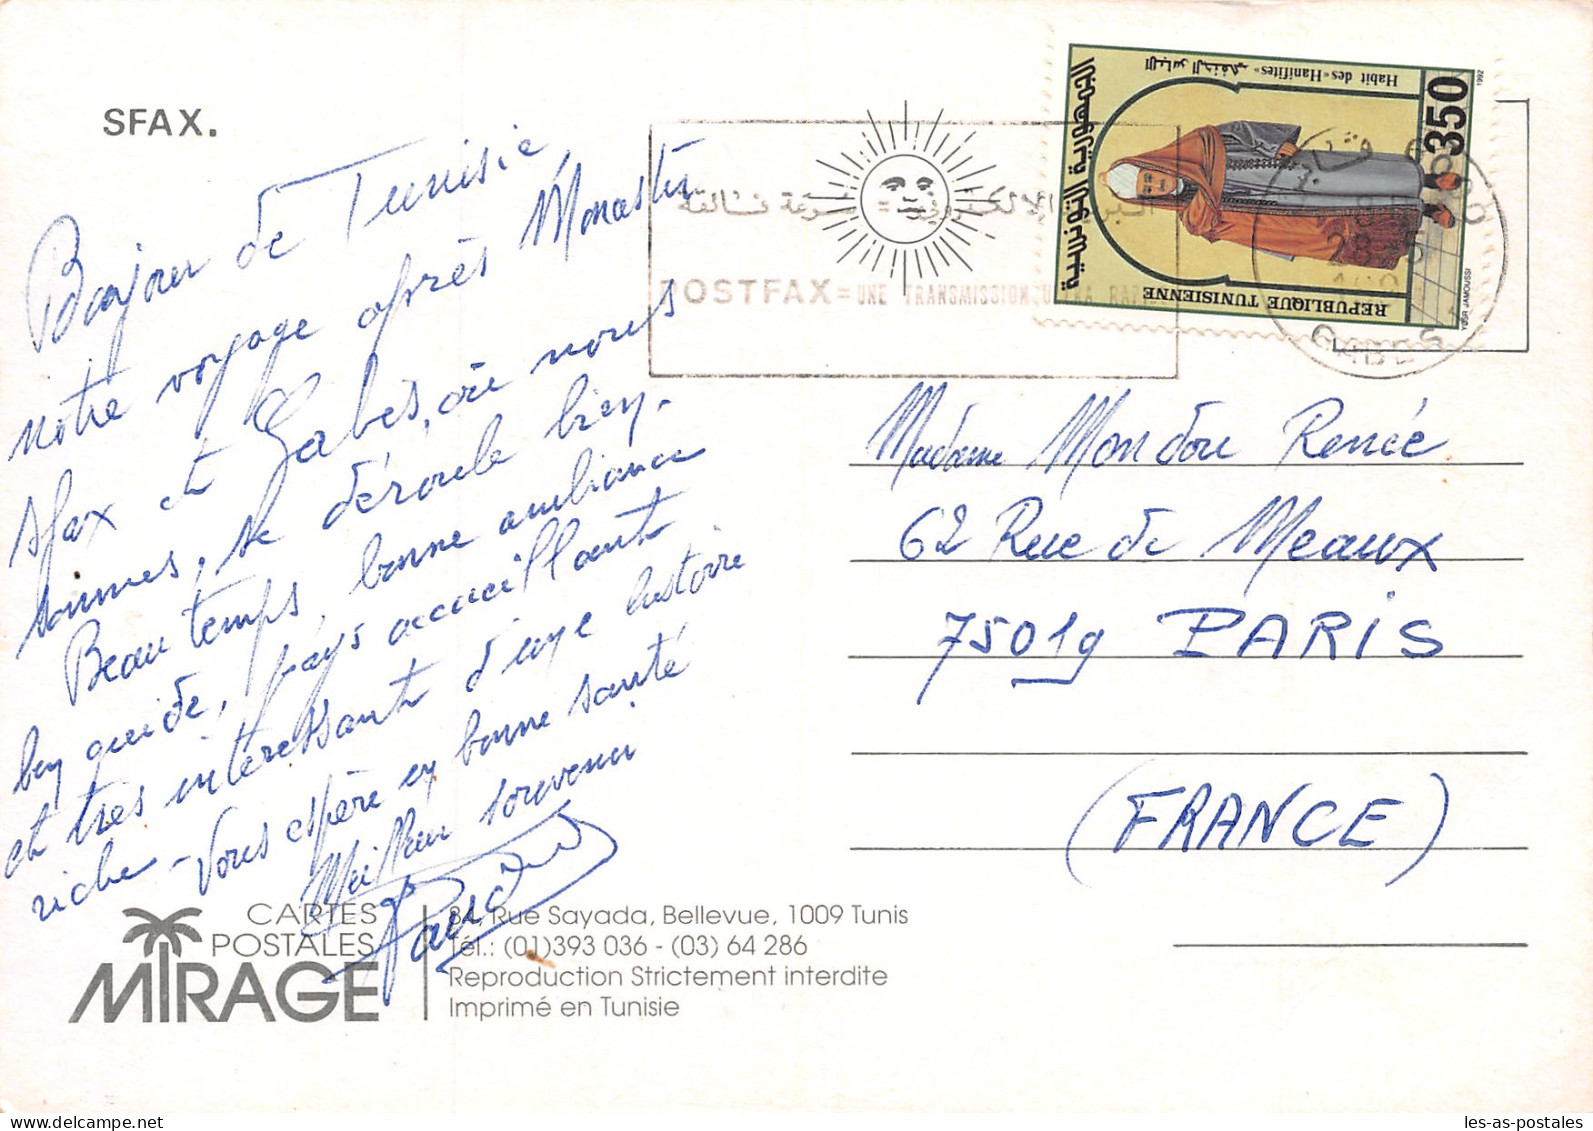 SFAX.
Bonjour de Tunisie
notre voyage après Monastir
Sfax et Gabès, où nous
sommes, se déroule bien.
Beau temps, bonne ambiance
bien guidé, pays accueillant
et très intéressant d'une histoire
riche - Vous espère en bonne santé
Meilleur souvenir
CARTES
POSTALES
MIRAGE
84, Rue Sayada, Bellevue, 1009 Tunis
Tél.: (01)393 036 - (03) 64 286
Reproduction Strictement interdite
Imprimé en Tunisie
POSTFAX = UNE TRANSMISSION ULTRA RAPIDE
GABES
350
1992
Habit des «Hanifites»
اللباس الحنفي
الجمهورية التونسية
REPUBLIQUE TUNISIENNE
YOSR JAMOUSSI
Madame Mondou Renée
62 Rue de Meaux
75019 PARIS
(FRANCE)
les-as-postales